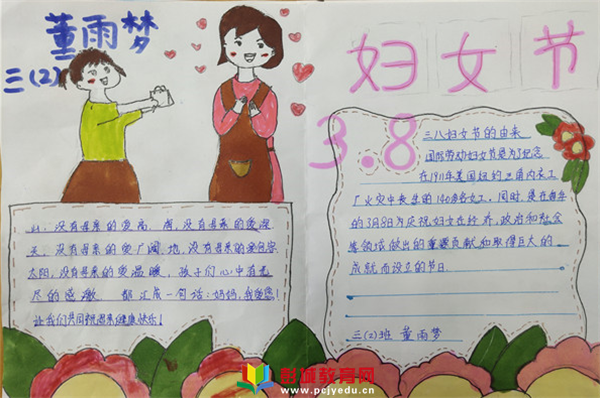 董雨梦
三(2)
妇女节
3.8
山,没有母亲的爱高,海,没有母亲的爱深
天,没有母亲的爱广阔,地,没有母亲的爱包容
太阳,没有母亲的爱温暖,孩子们心中有无
尽的感激,都汇成一句话:妈妈,我爱您!
让我们共同祝福母亲健康快乐!
三八妇女节的由来
国际劳动妇女节是为了纪念
在1911年美国纽约三角内衣工
厂火灾中丧生的140多名女工,同时,是在每年
的3月8日为庆祝妇女在经济,政治和社会
等领域做出的重要贡献和取得巨大的
成就而设立的节日.
三(2)班 董雨梦
彭城教育网
www.pcjyedu.cn